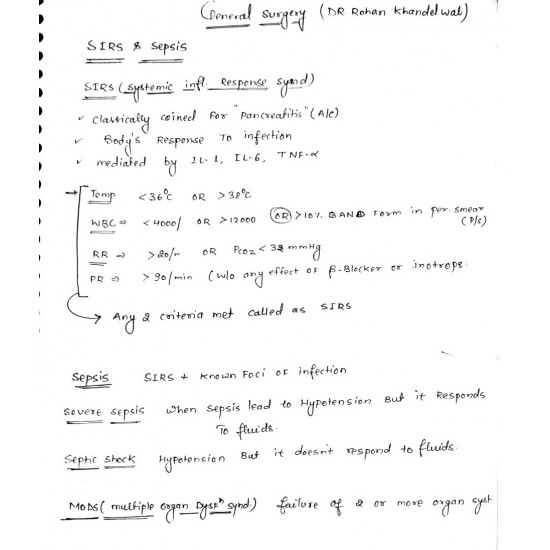 General Surgery (DR Rohan Khandelwal)
SIRS & Sepsis
SIRS (Systemic infl. Response synd)
✓ Classically coined For "Pancreatitis" (A/c)
✓ Body's Response To infection
✓ mediated by IL-1, IL-6, TNF-α
→ Temp <36°c OR >38°c
WBC ⇒ <4000/ OR >12000 (OR) >10% BAND Form in per. smear (P/s)
RR ⇒ >20/m OR Pco2 < 32 mmHg
PR ⇒ >90/min (w/o any effect of β-Blocker or inotrops.
→ Any 2 criteria met called as SIRS
Sepsis SIRS + Known Foci of infection
Severe sepsis when sepsis lead to Hypotension But it Responds
To fluids.
Septic shock Hypotension But it doesn't respond to fluids.
MODS (multiple organ Dysfn synd.) failure of 2 or more organ syst